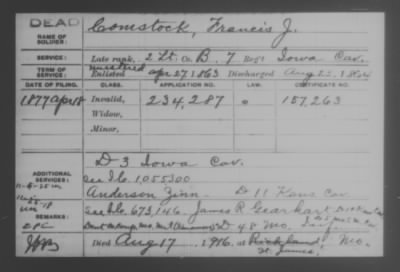 DEAD
Comstock, Francis J.
NAME OF SOLDIER:
SERVICE: Late rank, 2 Lt. Co. B, 7 Reg't Iowa Cav.
TERM OF SERVICE: mustered Enlisted Apr 27, 1863 Discharged Aug 22, 1864
DATE OF FILING. CLASS. APPLICATION NO. LAW. CERTIFICATE NO.
1877 Apr 18 Invalid, 234,287 157,263
Widow,
Minor,
D 3 Iowa Cav.
ADDITIONAL SERVICES: See Ilo. 1,055300
Anderson Zinn D 11 Kans. Cav
REMARKS: See Ilo. 673,146. James R Gearhart
D 48 Mo. Inf
Died Aug 17, 1916, at Richland Mo.
St. James,